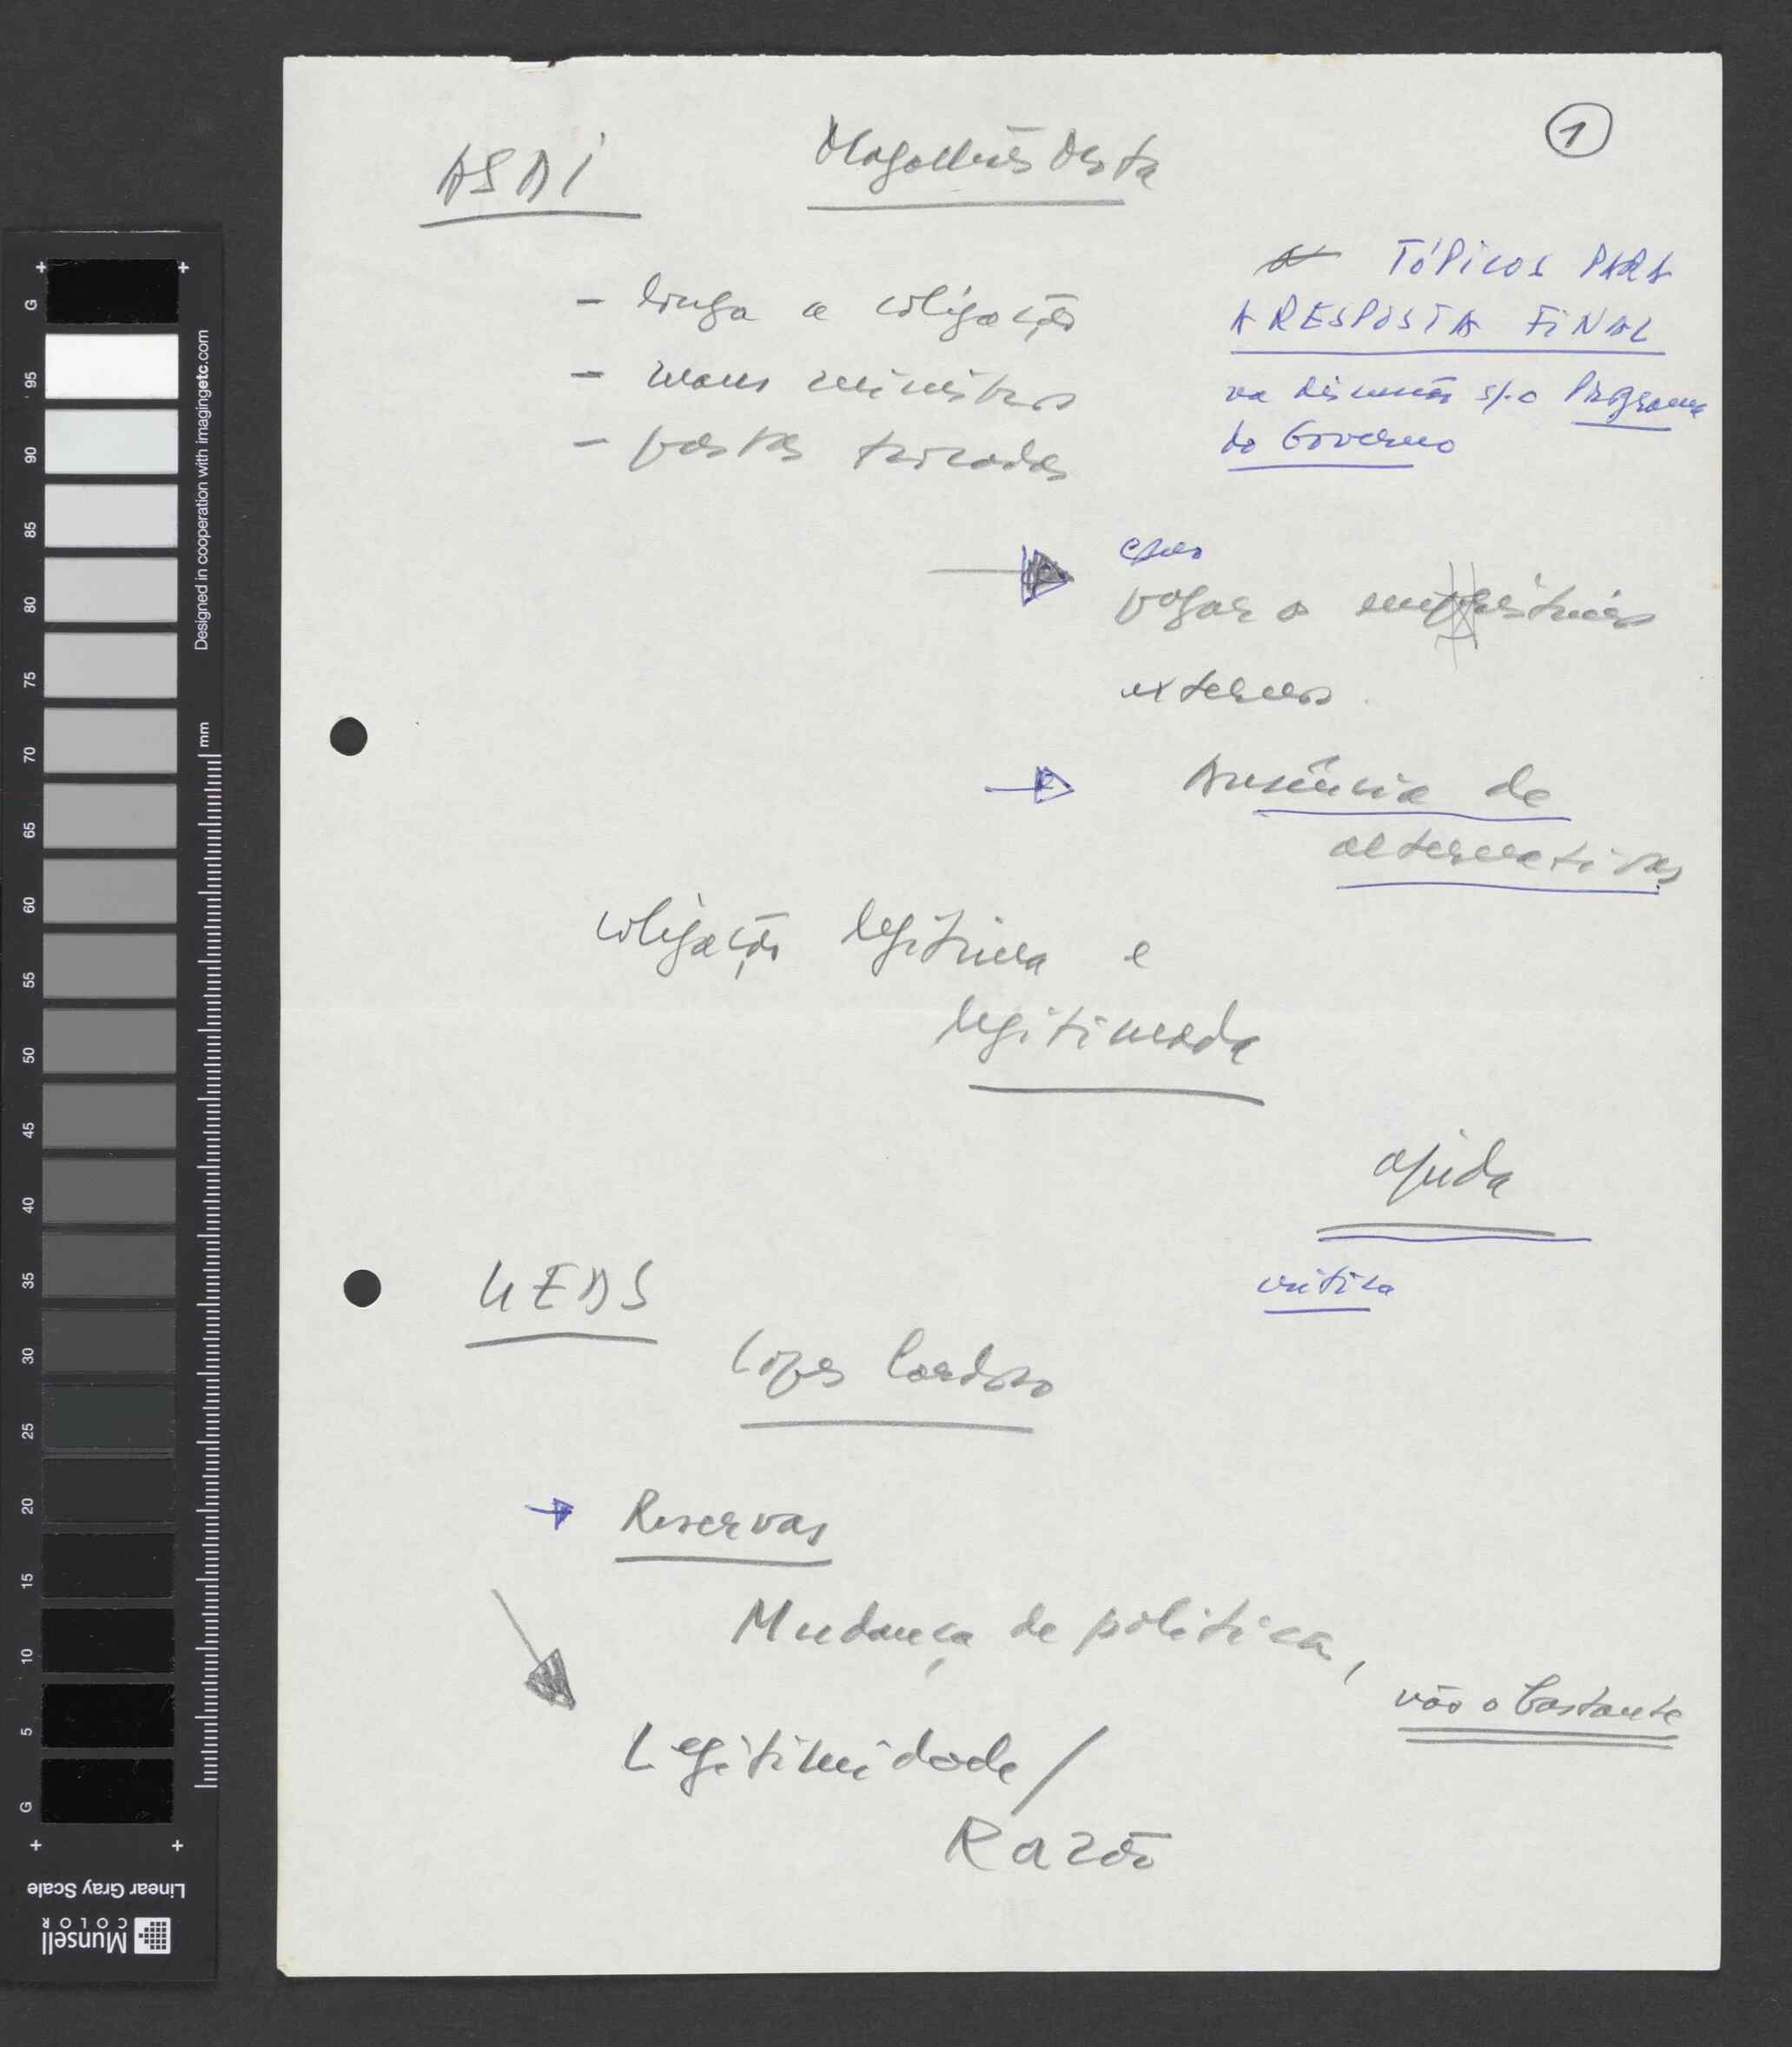 1
ASDI Magalhães Mota
TÓPICOS PARA
A RESPOSTA FINAL
na discussão s/ o Programa
do Governo
- longa a coligação
- maus ministros
- pastas trocadas
pagar os empréstimos
externos
Ausência de
alternativas
coligação legítima e
legitimada
ajuda
crítica
UEDS
Lopes Cardoso
Reservas
Mudança de política,
não obstante
Legitimidade/
Razão
Designed in cooperation with imagingetc.com
mm
G 95 90 85 80 75 70 65 60 55 50 45 40 35 30 25 20 15 10 5 G
Linear Gray Scale
Munsell
COLOR